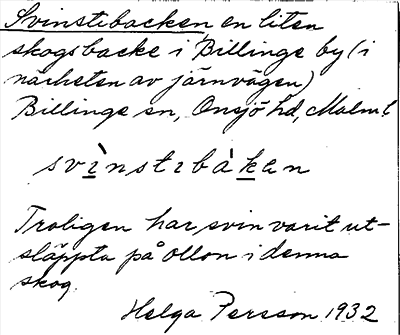 Svinstibacken, en liten
skogsbacke i Billinge by (i
närheten av järnvägen)
Billinge sn, Onsjö hd, Malm.l.
svìnstɩbàkən
Troligen har svin varit ut-
släppta på ollon i denna
skog.
Helga Persson 1932